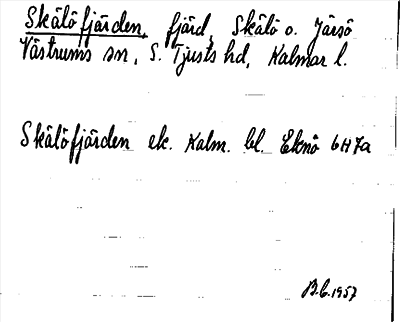 Skälöfjärden, fjärd, Skälö o. Järsö
Västrums sn, S. Tjusts hd, Kalmar l.
Skälöfjärden ek. Kalm. bl. Eknö 6H7a
B.C. 1957